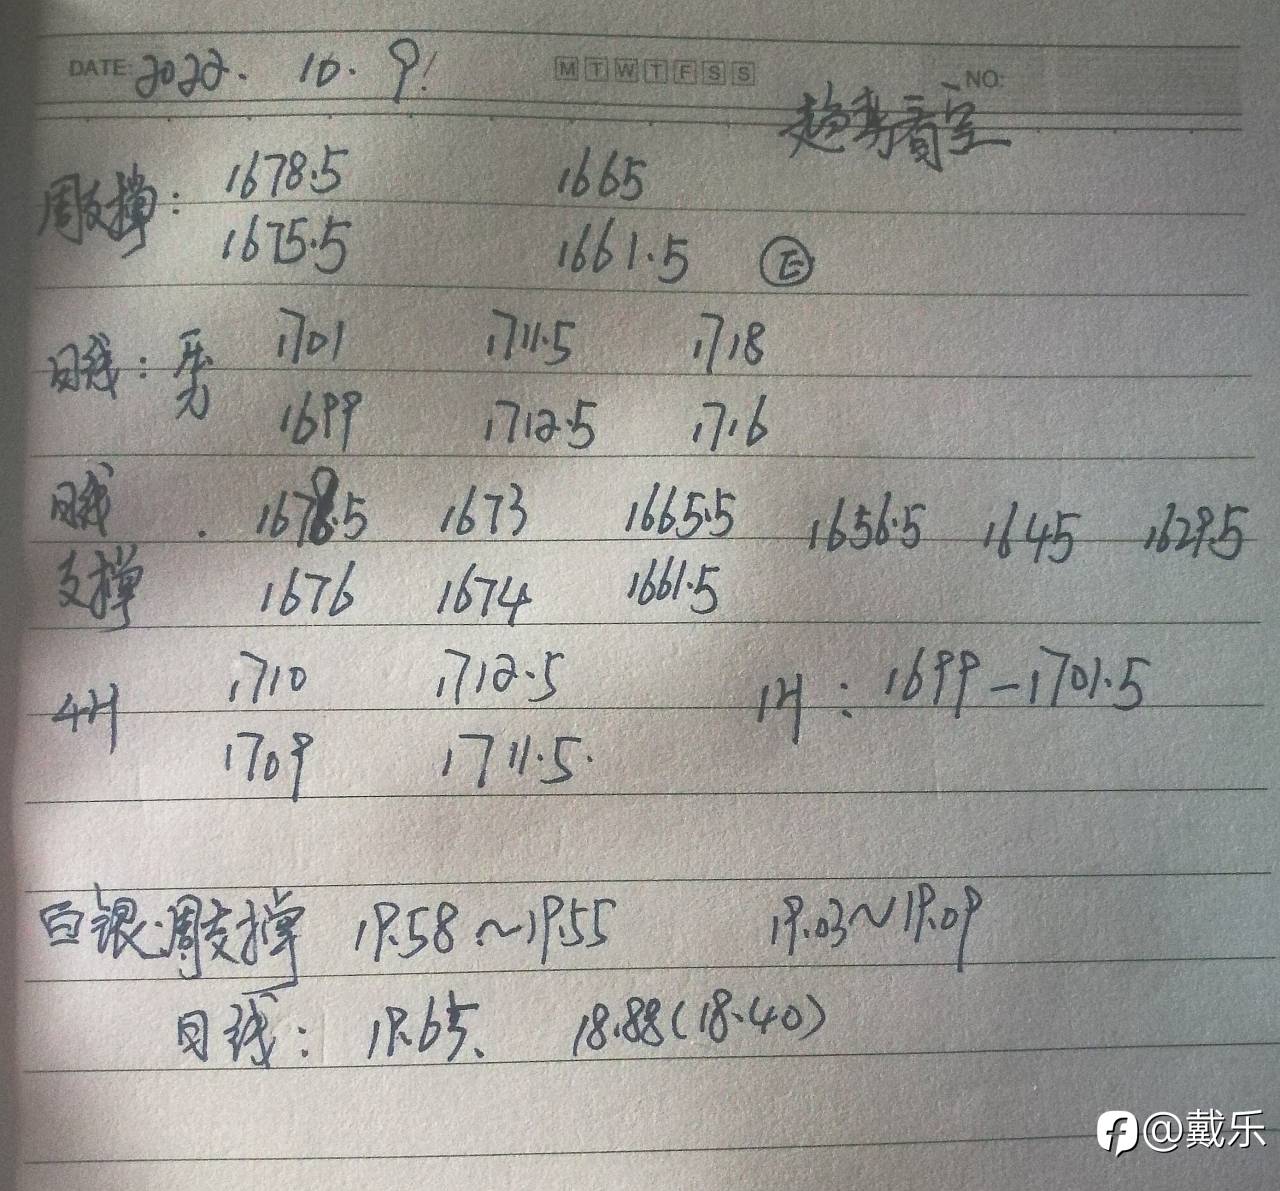 DATE: 2022. 10. 9! M T W T F S S NO:
趋势看空
周支撑: 1678.5 1665
1675.5 1661.5
日线: 压力 1701 1711.5 1718
1699 1712.5 1716
日线 1678.5 1673 1665.5 1656.5 1645 1629.5
支撑 1676 1674 1661.5
4H 1710 1712.5 1H: 1699-1701.5
1709 1711.5.
白银:周支撑 19.58~19.55 19.03~19.09
日线: 19.65、 18.88(18.40)
@戴乐